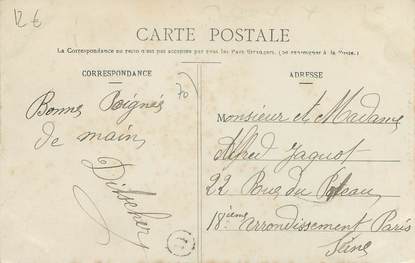 12 €
CARTE POSTALE
La Correspondance au recto n'est pas acceptée par tous les Pays Étrangers. (Se renseigner à la Poste.)
CORRESPONDANCE
70
Bonnes Poignés
de main
ADRESSE
Monsieur et Madame
Alfred Jaquot
22 Rue du Poteau
18ième Arrondissement Paris
Seine